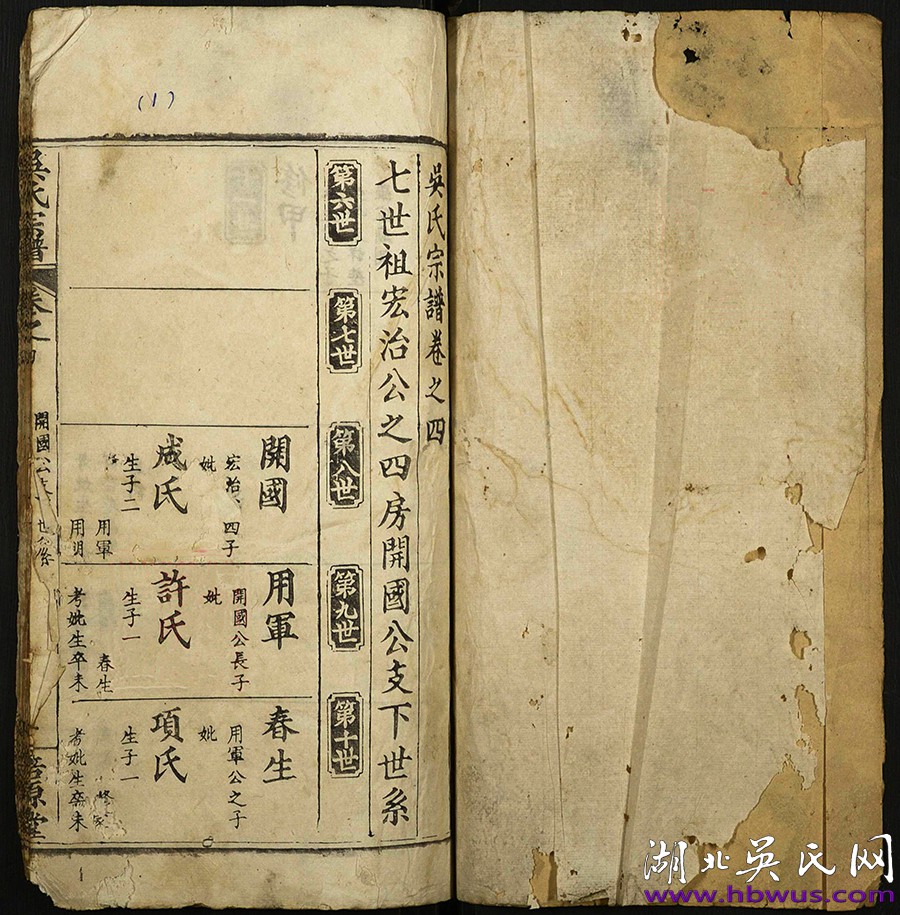 (1)
吳氏宗譜卷之四
七世祖宏治公之四房開國公支下世系
第六世
第七世
第八世
第九世
第十世
開國
宏治 四子
妣
成氏
生子二
用軍
用明
用軍
開國公長子
妣
許氏
生子一
春生
考妣生卒未
春生
用軍公之子
妣
項氏
生子一
考妣生卒未
吳氏宗譜
卷之四
開國公支 世系
湖北吳氏网
www.hbwus.com